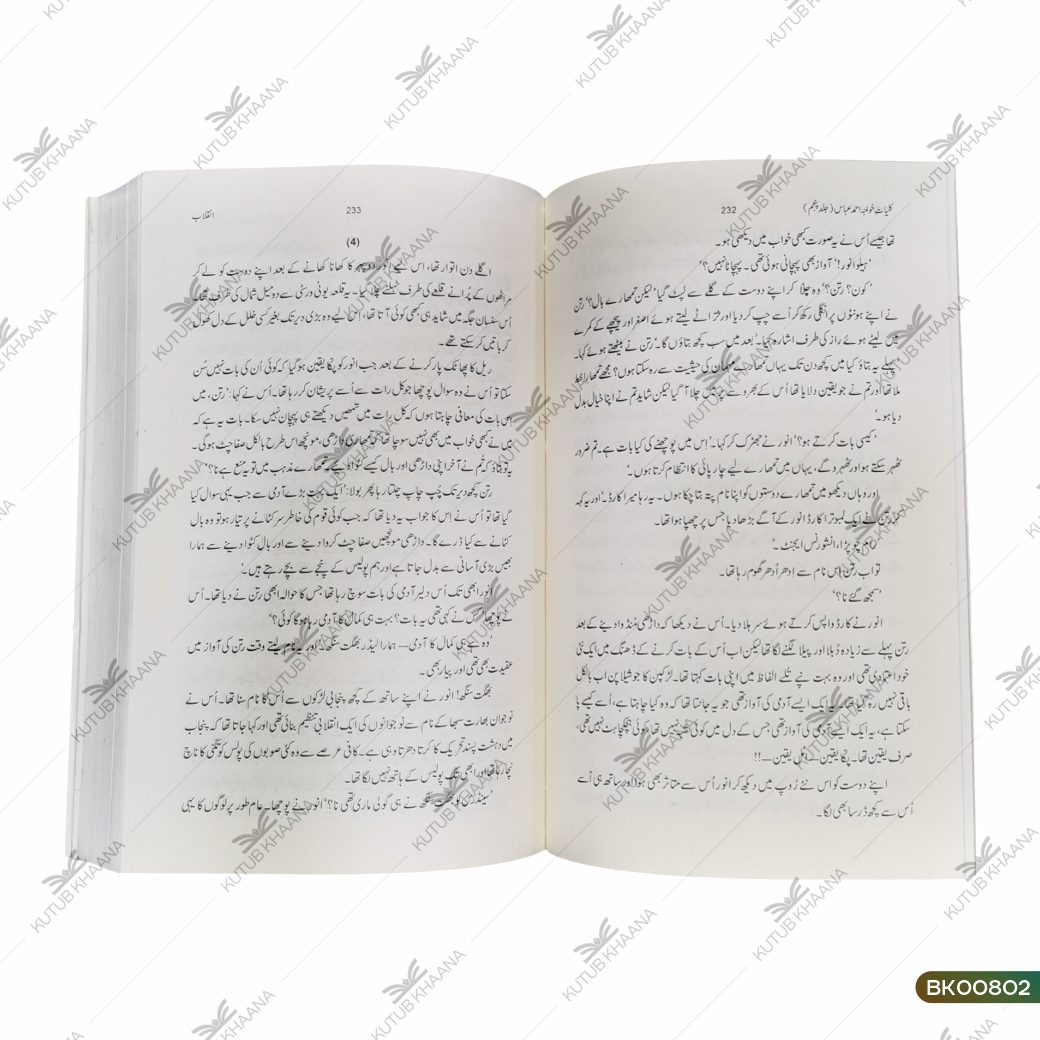 232
کلیاتِ خواجہ احمد عباس (جلد پنجم)
تھا جیسے اُس نے یہ صورت کبھی خواب میں دیکھی ہو۔
’ہیلو انور!‘ آواز بھی پہچانی ہوئی تھی۔ ’پہچانا نہیں؟‘
’کون؟ رتن؟‘ وہ چلّا کر اپنے دوست کے گلے سے لپٹ گیا ’لیکن تمھارے بال؟‘ رتن
نے اپنے ہونٹوں پر انگلی رکھ کر اُسے چپ کر دیا اور خرّاٹے لیتے ہوئے اصغر اور پیچھے کے کمرے
میں لیٹے ہوئے راز کی طرف اشارہ کیا۔ ’بعد میں سب کچھ بتاؤں گا۔‘ رتن نے بیٹھتے ہوئے کہا۔
’پہلے یہ بتاؤ کیا میں کچھ دن تک یہاں تمھارے مہمان کی حیثیت سے رہ سکتا ہوں؟ مجھے تمھارا خط
ملا تھا اور تم نے جو یقین دلایا تھا اُس کے بھروسے پر میں چلا آ گیا لیکن شاید تم نے اپنا خیال بدل
دیا ہو۔‘
’کیسی بات کرتے ہو؟‘ انور نے جھڑک کر کہا۔ ’اس میں پوچھنے کی کیا بات ہے۔ تم ضرور
ٹھہر سکتے ہو اور ٹھہرو گے، یہاں میں تمھارے لیے چارپائی کا انتظام کرتا ہوں۔‘
’اور وہاں دیکھو میں تمھارے دوستوں کو اپنا نام پتہ بتا چکا ہوں۔ یہ رہا میرا کارڈ۔‘ اور یہ کہہ
کر رتن نے ایک لمبوترا کارڈ انور کے آگے بڑھا دیا جس پر چھپا ہوا تھا۔
چوپڑا، انشورنس ایجنٹ۔‘
تو اب رتن اس نام سے اِدھر اُدھر گھوم رہا تھا۔
’سمجھ گئے نا؟‘
انور نے کارڈ واپس کرتے ہوئے سر ہلا دیا۔ اُس نے دیکھا کہ داڑھی مُنڈوا دینے کے بعد
رتن پہلے سے زیادہ دُبلا اور پیلا لگنے لگا تھا لیکن اب اُس کے بات کرنے کے ڈھنگ میں ایک نئی
خود اعتمادی تھی اور وہ بہت نپے تُلے الفاظ میں اپنی بات کہتا تھا۔ لڑکپن کا جوشیلا پن اب بالکل
باقی نہیں رہ گیا تھا۔ یہ ایک ایسے آدمی کی آواز تھی جو یہ جانتا تھا کہ وہ کیا چاہتا ہے، اُسے کیسے پا
سکتا ہے، یہ ایک ایسے آدمی کی آواز تھی جس کے دل میں کوئی شک نہیں تھا، کوئی ہچکچاہٹ نہیں تھی،
صرف یقین تھا۔ پکّا یقین— اٹل یقین—!!
اپنے دوست کو اس نئے رُوپ میں دیکھ کر انور اُس سے متاثر بھی ہوا اور ساتھ ہی اُسے
اُس سے کچھ ڈر سا بھی لگا۔
انقلاب
233
(4)
اگلے دن اتوار تھا، اس لیے انور دوپہر کا کھانا کھانے کے بعد اپنے دوست کو لے کر
مراٹھوں کے پُرانے قلعے کی طرف ٹہلنے چلا گیا۔ یہ قلعہ یونی ورسٹی سے دو میل شمال کی طرف تھا۔
اُس سنسان جگہ میں شاید ہی بھی کوئی آتا تھا، اِس لیے وہ بڑی دیر تک بغیر کسی خلل کے دل کھول
کر باتیں کر سکتے تھے۔
ریل کا پھاٹک پار کرنے کے بعد جب انور کو پکّا یقین ہو گیا کہ کوئی اُن کی بات نہیں سُن
سکتا تو اُس نے وہ سوال پوچھا جو کل رات سے اُسے پریشان کر رہا تھا۔ اُس نے کہا: ’رتن، میں
اس بات کی معافی چاہتا ہوں کہ کل رات میں تمھیں دیکھتے ہی پہچان نہیں سکا۔ بات یہ ہے کہ
میں نے کبھی خواب میں بھی نہیں سوچا تھا کہ تمھاری داڑھی، مونچھ اس طرح بالکل صفاچٹ ہو گی۔
یہ تو بتاؤ کہ تُم نے آخر اپنی داڑھی اور بال کیسے کٹوا دیے۔ تمھارے مذہب میں تو یہ منع ہے نا؟‘
رتن کچھ دیر تک چُپ چاپ چلتا رہا پھر بولا: ’ایک بہت بڑے آدمی سے جب یہی سوال کیا
گیا تھا تو اُس نے اِس کا جواب یہ دیا تھا کہ جب کوئی قوم کی خاطر سر کٹانے پر تیار ہو تو وہ بال
کٹانے سے کیا ڈرے گا۔ داڑھی مونچھیں صفاچٹ کروا دینے سے اور بال کٹوا دینے سے ہمارا
بھیس بڑی آسانی سے بدل جاتا ہے اور ہم پولیس کے پنجے سے بچے رہتے ہیں۔‘
انور ابھی تک اُس دلیر آدمی کی بات سوچ رہا تھا جس کا حوالہ ابھی رتن نے دیا تھا۔ اُس
نے پوچھا ’کس نے کہی تھی یہ بات؟ بہت ہی کمال کا آدمی رہا ہو گا کوئی؟‘
’وہ ہے ہی کمال کا آدمی— ہمارا لیڈر بھگت سنگھ۔‘ اور یہ نام لیتے وقت رتن کی آواز میں
عقیدت بھی تھی اور پیار بھی۔
بھگت سنگھ! انور نے اپنے ساتھ کے کچھ پنجابی لڑکوں سے اُس کا نام سنا تھا۔ اُس نے
نوجوان بھارت سبھا کے نام سے نوجوانوں کی ایک انقلابی تنظیم بنائی تھی اور کہا جاتا تھا کہ پنجاب
میں دہشت پسند تحریک کا کرتا دھرتا وہی ہے۔ کافی عرصے سے وہ کئی صوبوں کی پولس کو تگنی کا ناچ
نچا رہا تھا اور ابھی تک پولیس کے ہاتھ نہیں لگا تھا۔
’سینڈرس کو بھگت سنگھ نے ہی گولی ماری تھی نا؟‘ انور نے پوچھا۔ عام طور پر لوگوں کا یہی
KUTUB KHAANA
BK00802